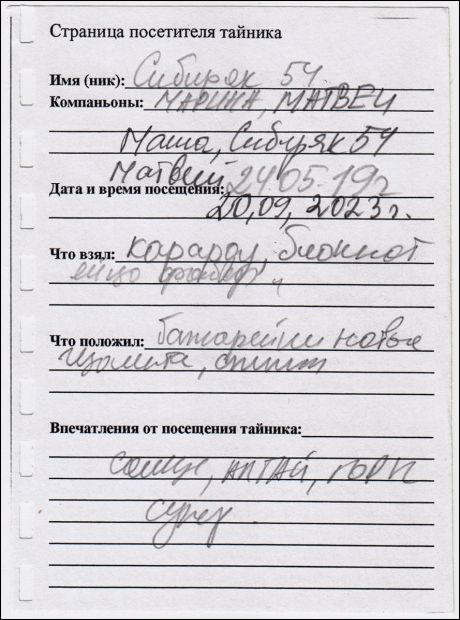 Страница посетителя тайника
Имя (ник): Сибиряк 54
Компаньоны: МАРИНА, МАТВЕЙ
Маша, Сибиряк 54
Матвей
Дата и время посещения: 24.05.19г
20,09, 2023г.
Что взял: блокнот
яйцо
Что положил: батарейки новые
Впечатления от посещения тайника:
Солнце, АЛТАЙ, ГОРЫ
супер